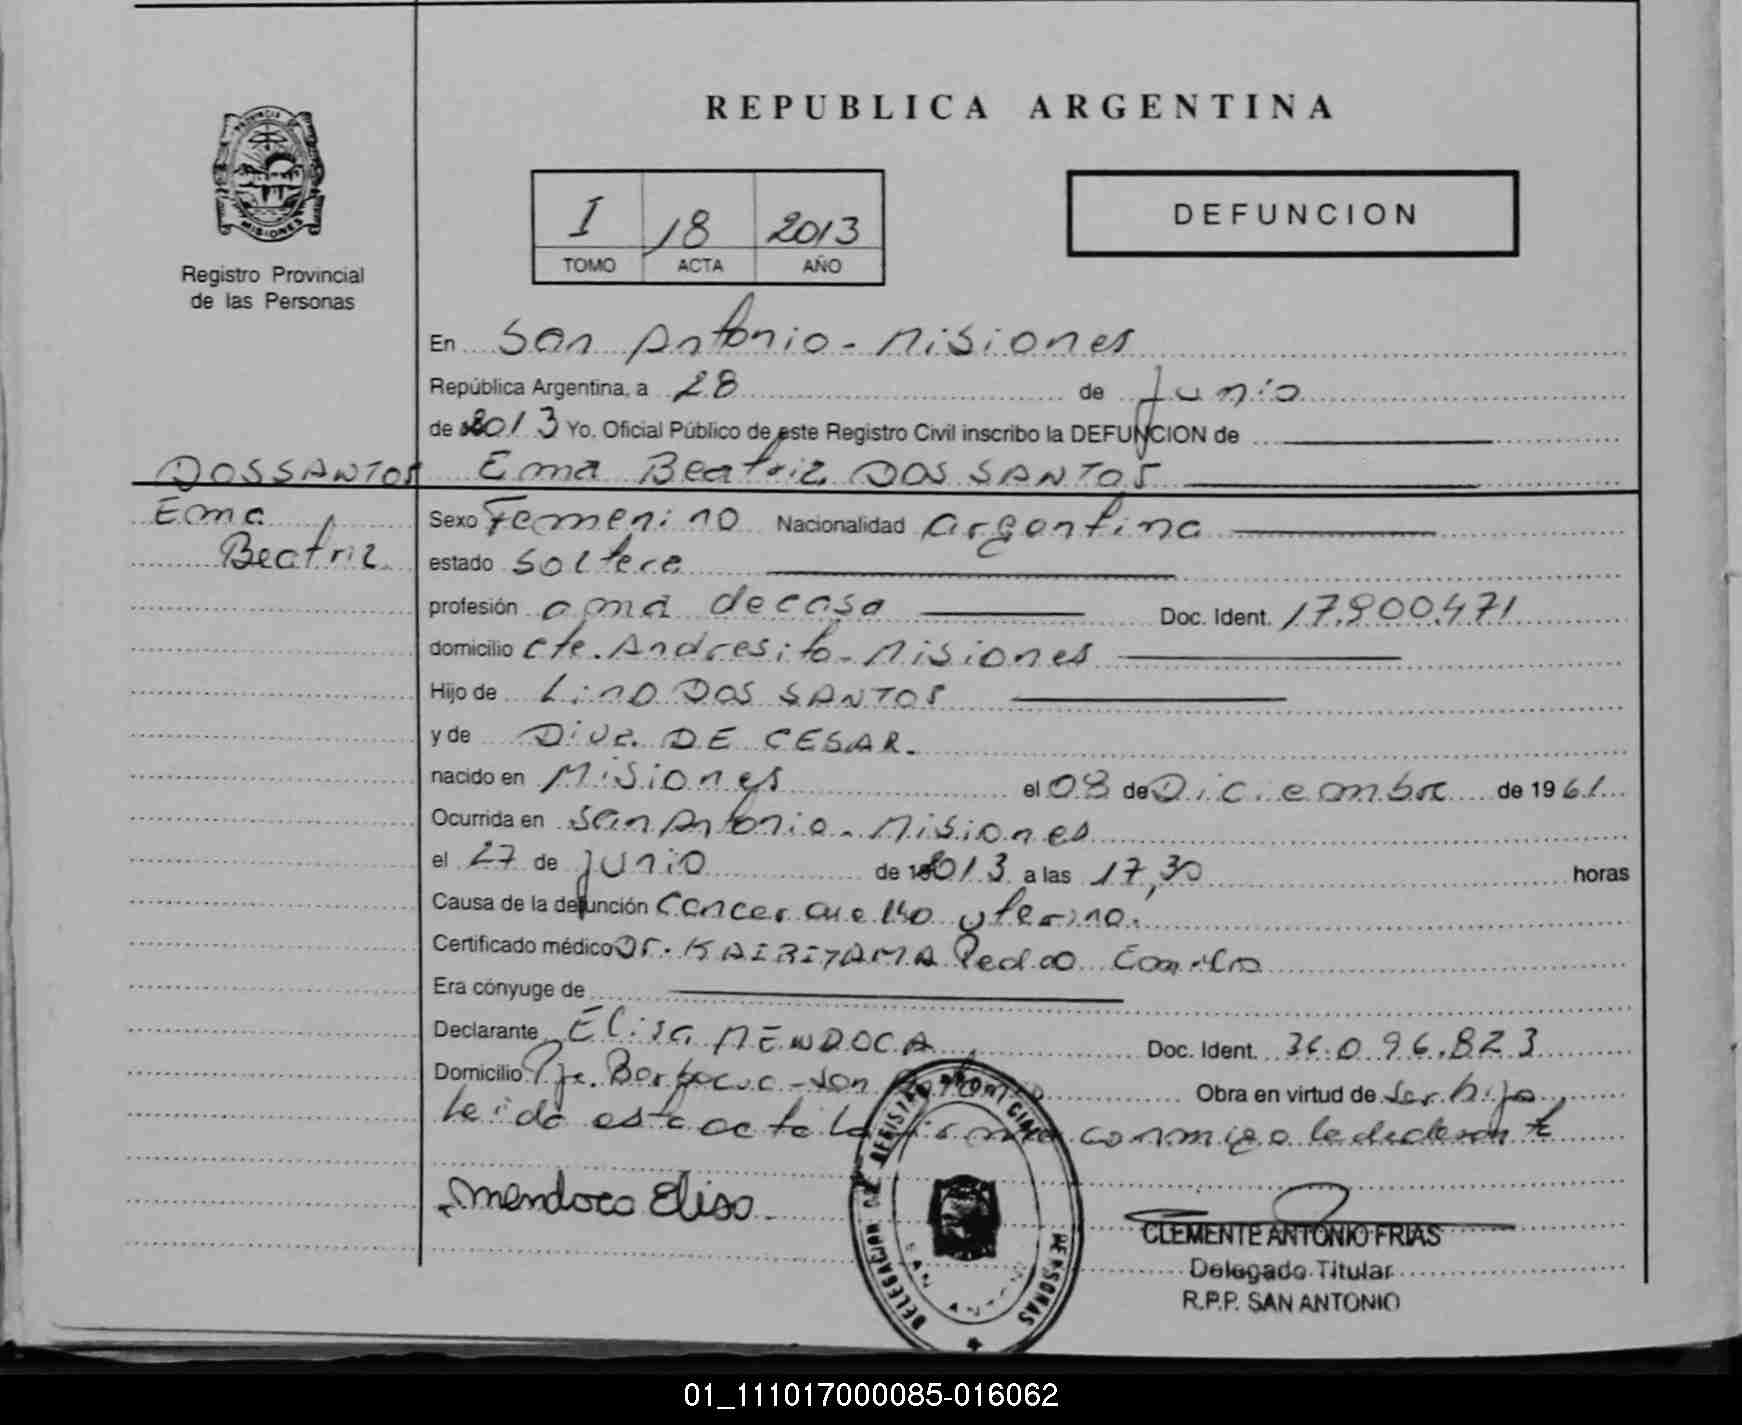 REPUBLICA ARGENTINA
PROVINCIA DE MISIONES
Registro Provincial
de las Personas
I 18 2013
TOMO ACTA AÑO
DEFUNCION
En San Antonio - Misiones
República Argentina, a 28 de Junio
de 2013 Yo, Oficial Público de este Registro Civil inscribo la DEFUNCION de
DOS SANTOS
Ema
Beatriz
Ema Beatriz DOS SANTOS
Sexo Femenino Nacionalidad argentina
estado soltera
profesión ama de casa Doc. Ident. 17.900.471
domicilio Cte. Andresito - Misiones
Hijo de Lino DOS SANTOS
y de DE CESAR.
nacido en Misiones el 08 de Diciembre de 1961
Ocurrida en San Antonio - Misiones
el 27 de junio de 2013 a las 17,30 horas
Causa de la defunción Cancer cuello uterino.
Certificado médico Dr. KAIRIYAMA Pedro
Era cónyuge de
Declarante Elisa MENDOCA Doc. Ident. 36.096.823
Domicilio Pje. - San Antonio Obra en virtud de ser hija
leida esta acta la firma conmigo la declarante
Mendoca Elisa
DELEGACION DE REGISTRO PROVINCIAL PERSONAS
SAN ANTONIO
CLEMENTE ANTONIO FRIAS
Delegado Titular
R.P.P. SAN ANTONIO
01_111017000085-016062